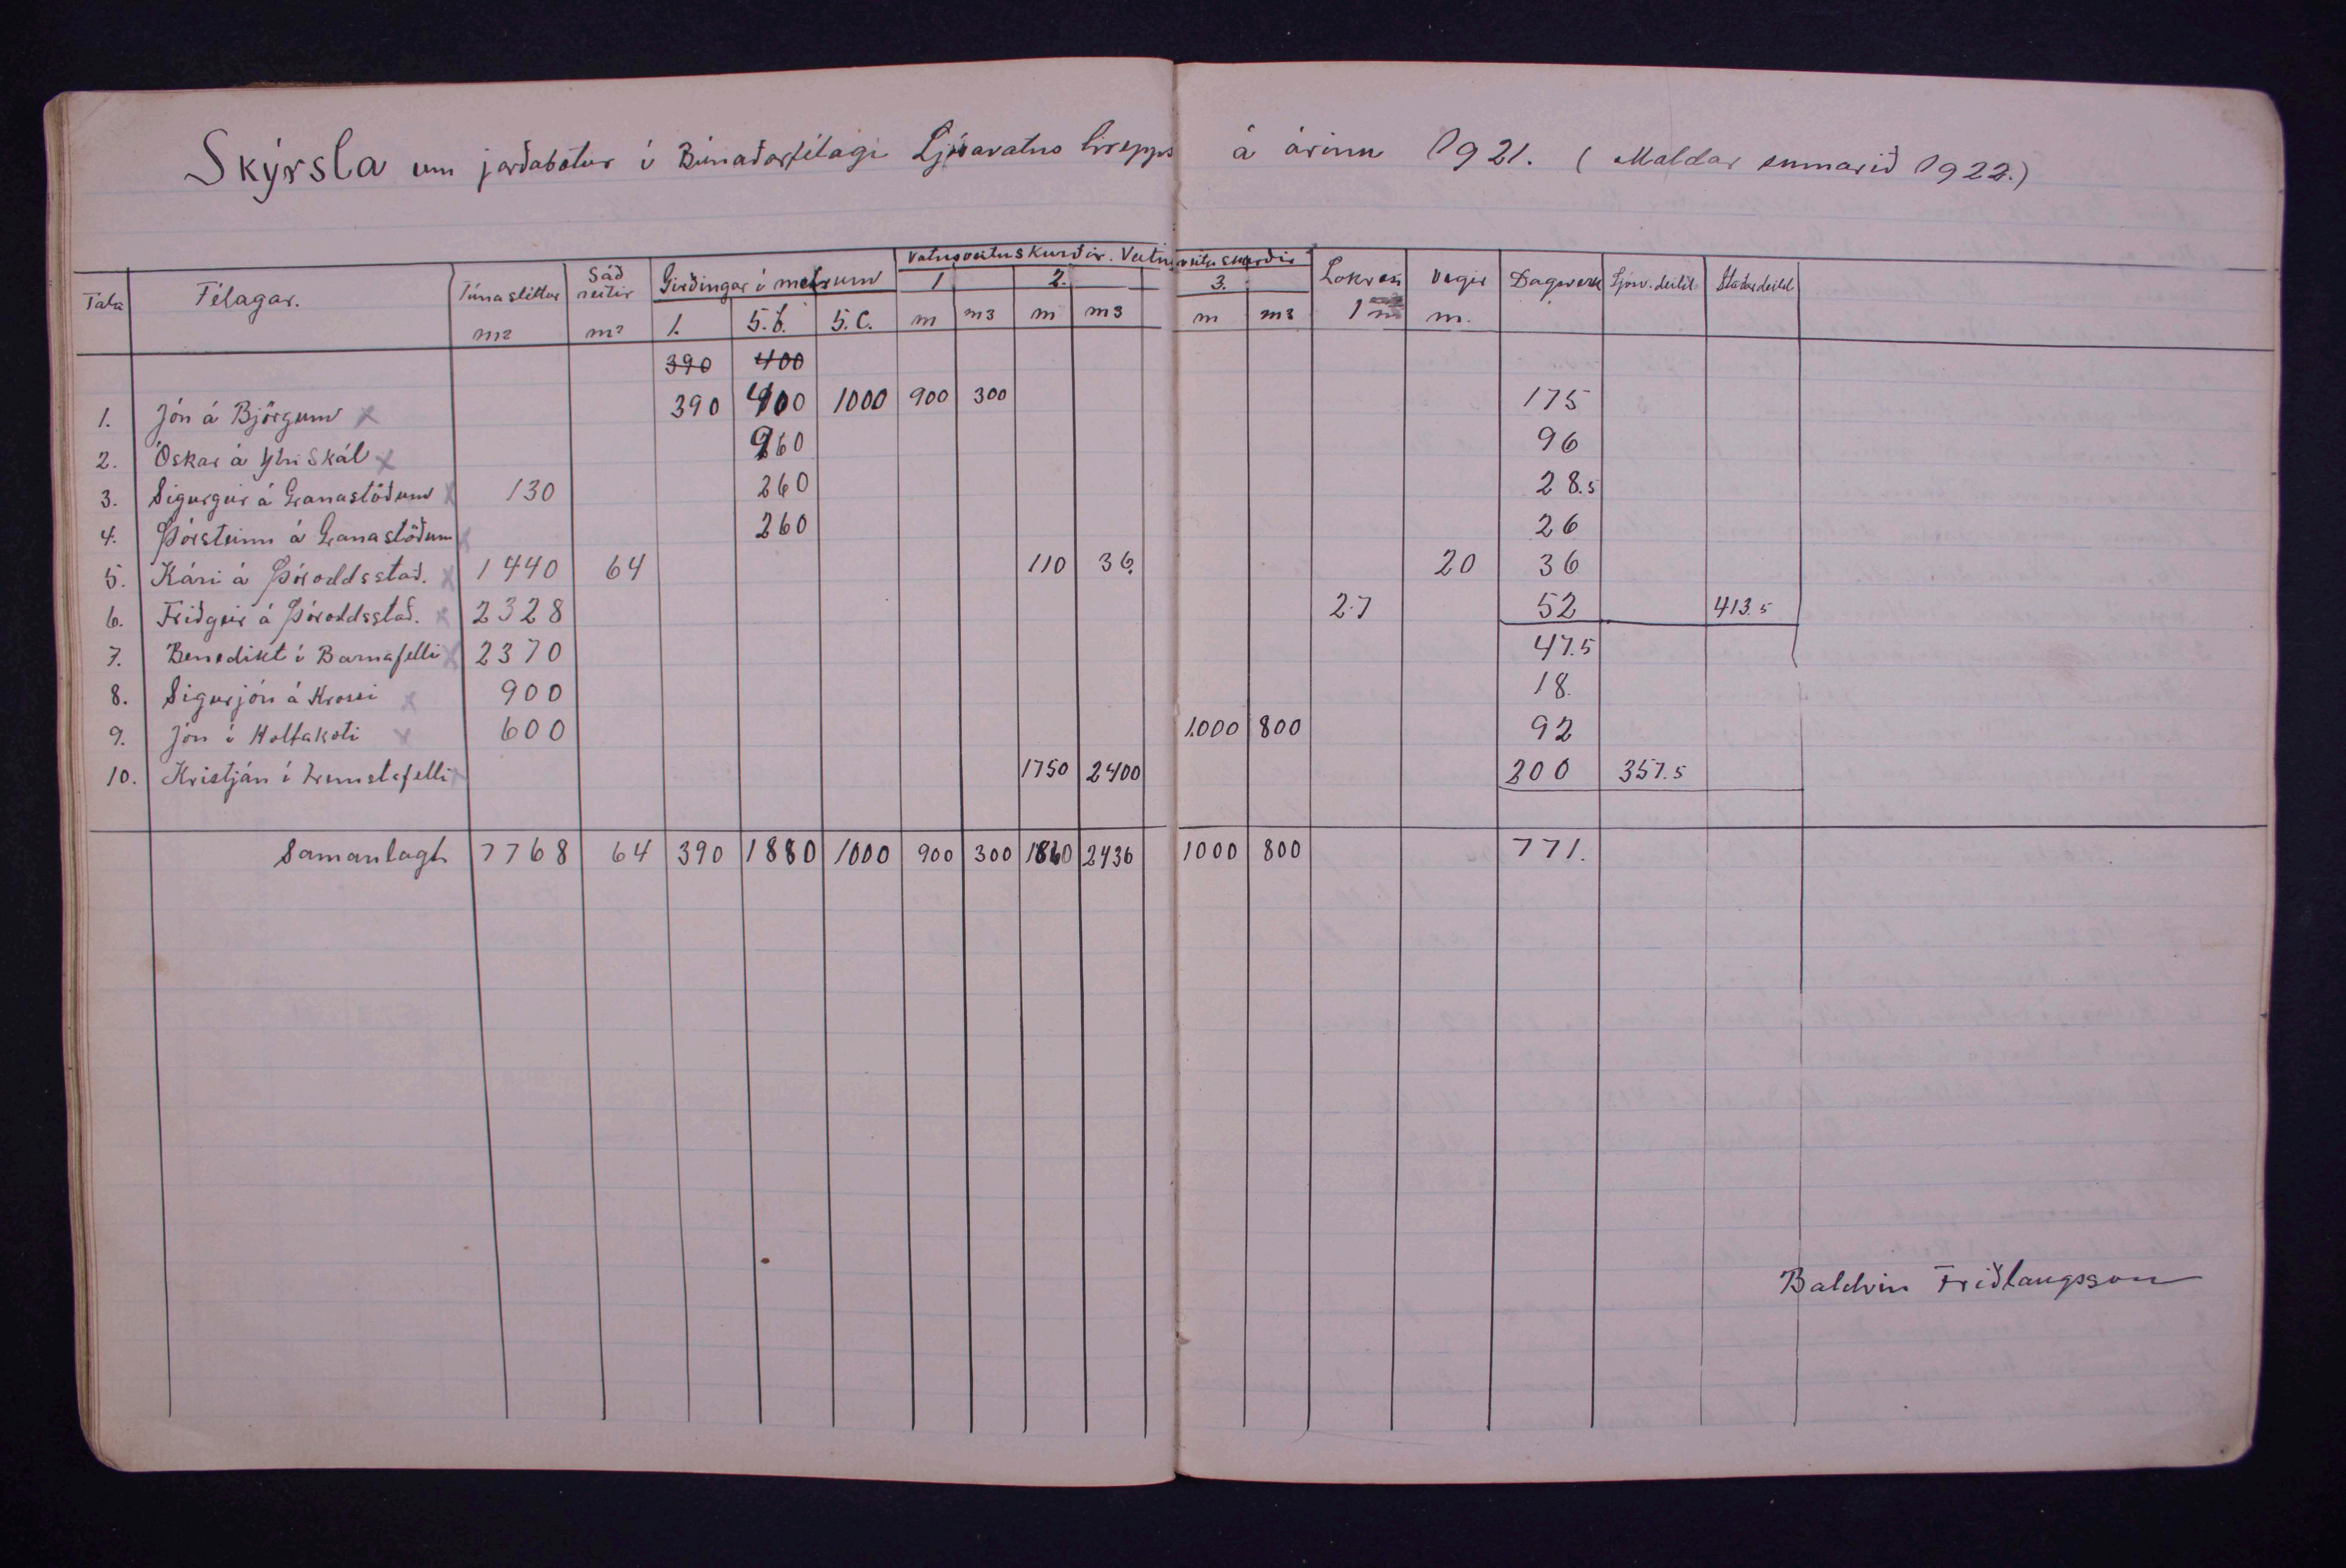 Skýrsla um jarðabótur í Búnaðarfélagi Ljósavatns hrepps á árinu 1921. (Maldar sumarið 1922.)
Tala Félagar. Túnasléttur Sáð reitir Girðingar í metrum Vatnsveituskurðir. Veitu
m² m² 1. 5.b. 5.C. 1 m m3 2. m m3 3. m m3 Lokræsi 1 m Vegir m. Dagsverk Ljósv.deild Staðardeild
390 400
1. Jón á Björgum x 390 400 1000 900 300 175
2. Óskar á Yhriskál x 960 96
3. Sigurgeir á Granastöðum x 130 260 28.5
4. Þórsteinn á Granastöðum x 260 26
5. Kári á Þóroddsstað. x 1440 64 110 36. 20 36
6. Friðgeir á Þóroddsstað. x 2328 27 52 413.5
7. Benedikt í Barnafelli x 2370 47.5
8. Sigurjón á Krossi x 900 18.
9. Jón í Holtakoti x 600 1000 800 92
10. Kristján í Fremstafelli x 1750 2400 200 357.5
Samanlagt 7768 64 390 1880 1000 900 300 1860 2436 1000 800 771.
Baldvin Friðlaugsson